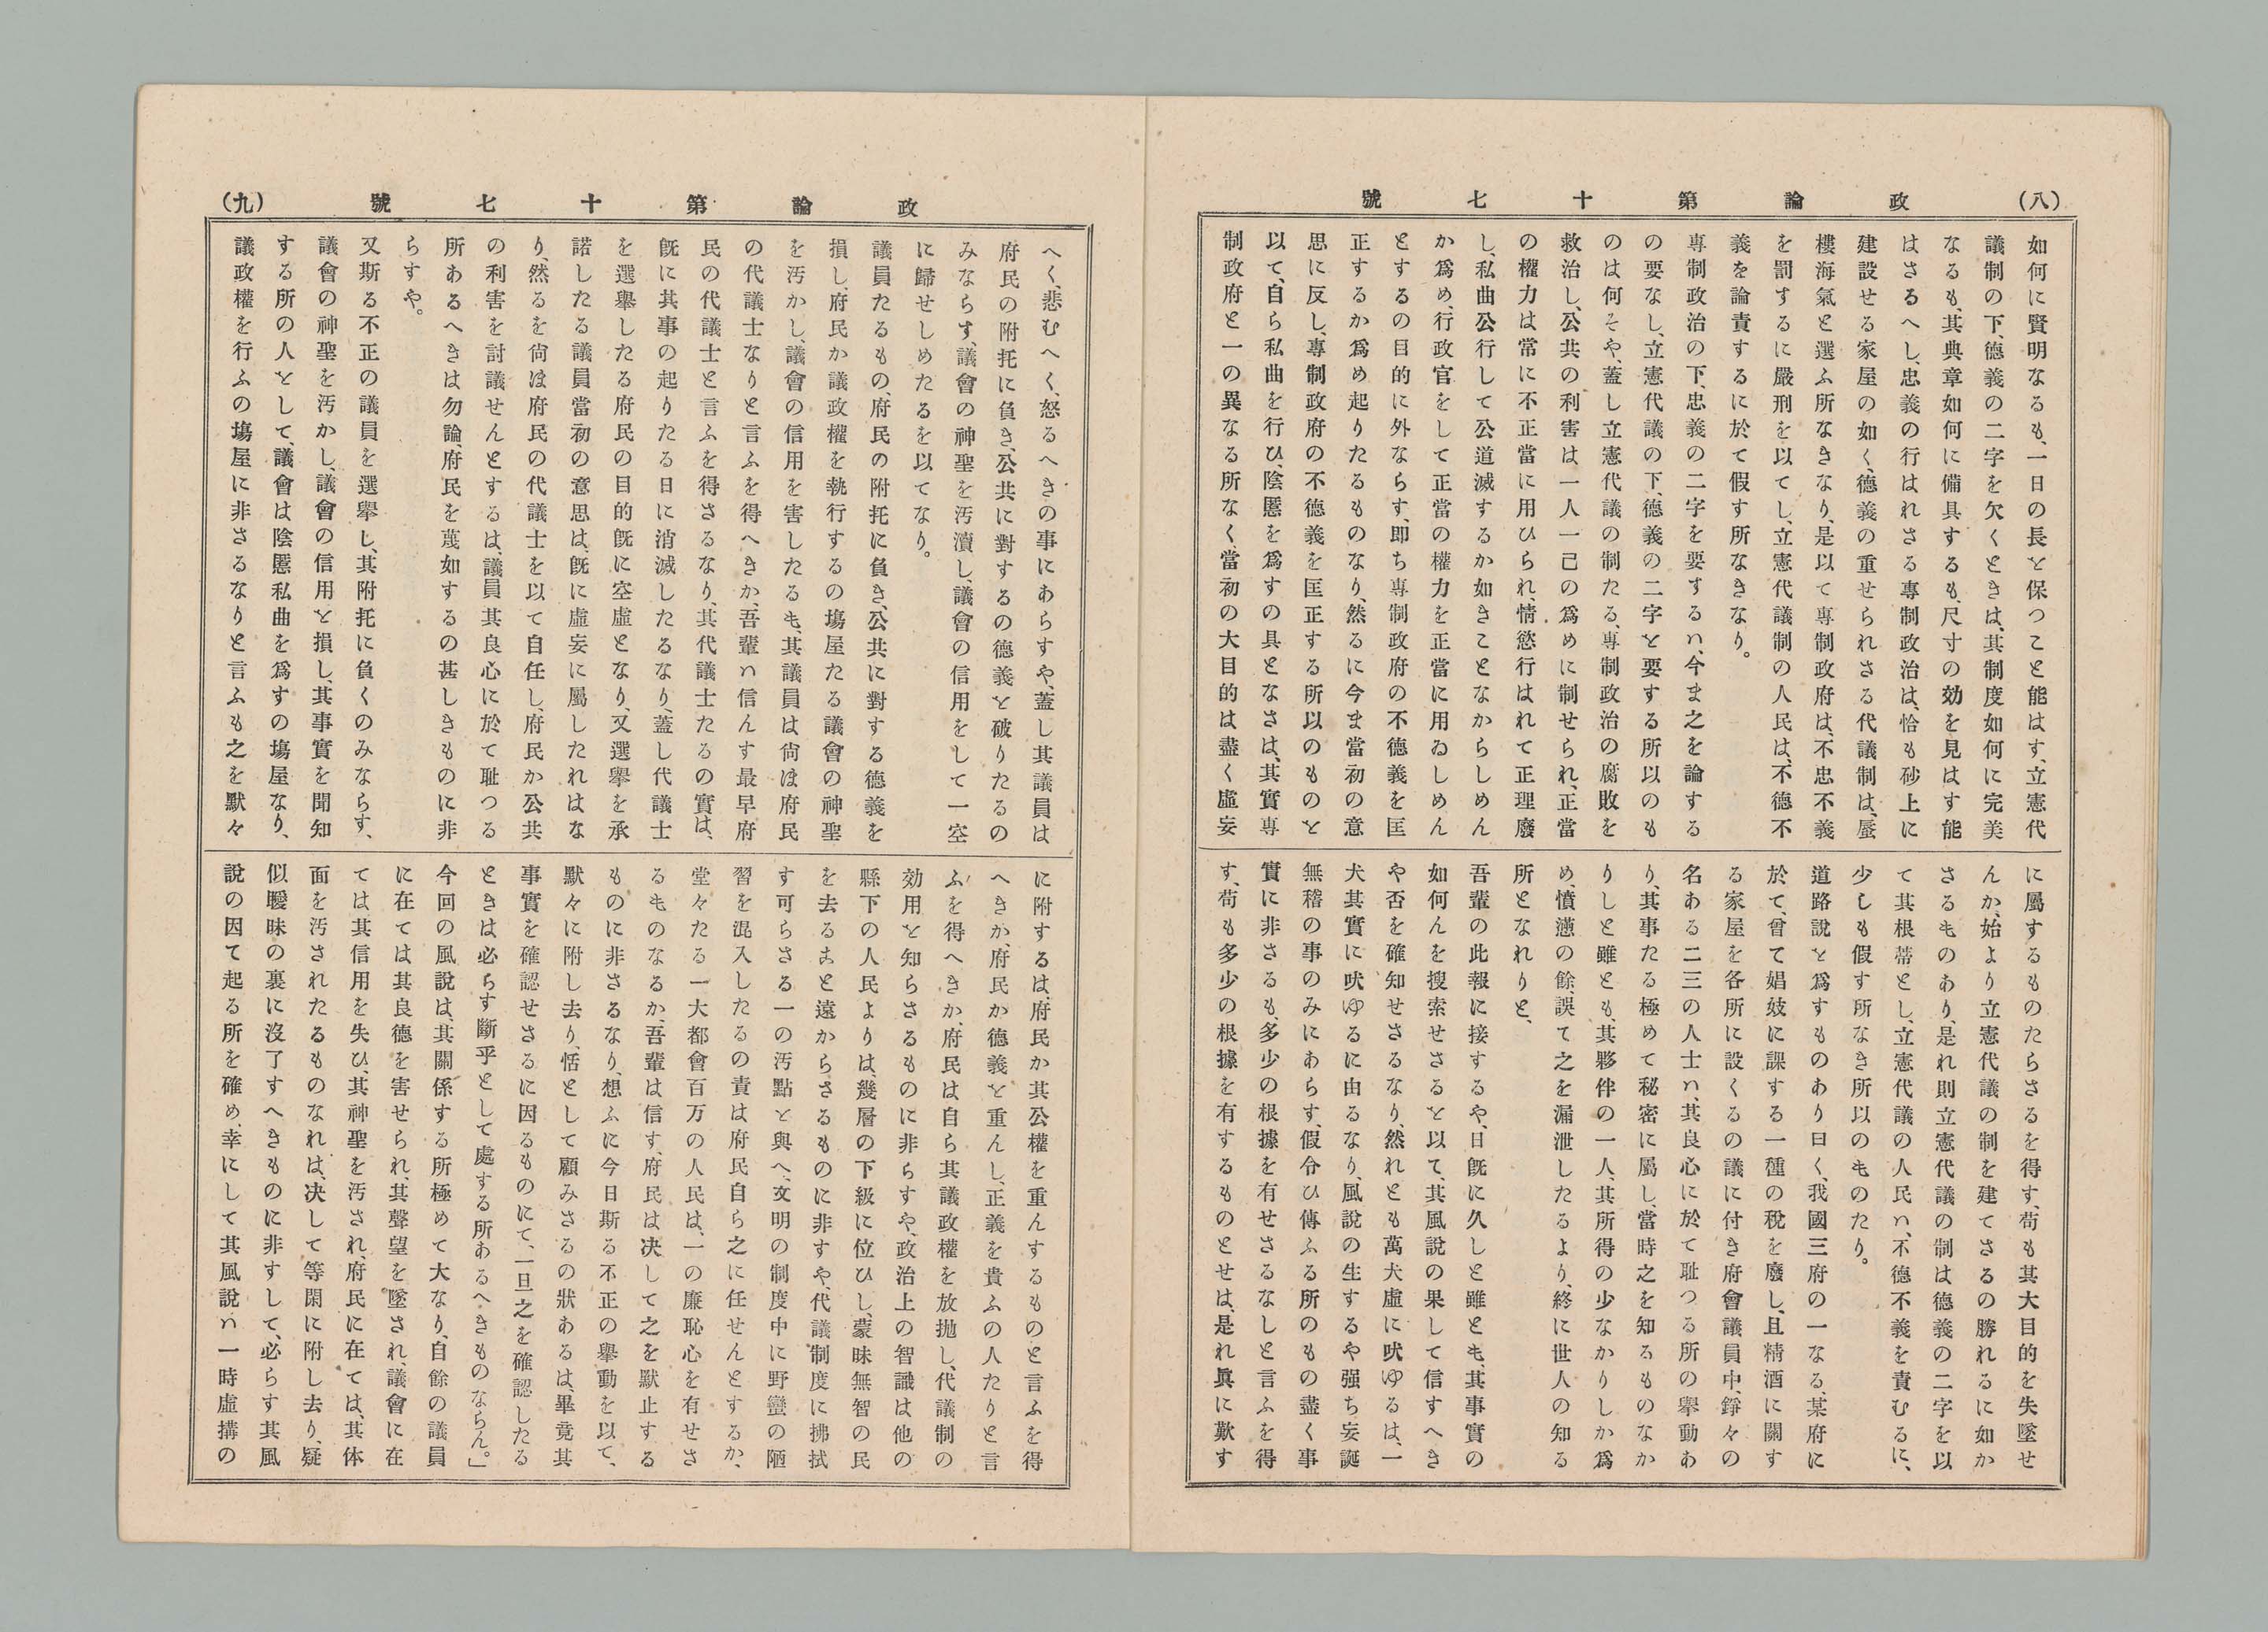 （八）　政論第十七號
如何に賢明なるも、一日の長を保つこと能はす、立憲代
議制の下、德義の二字を欠くときは、其制度如何に完美
なるも、其典章如何に備具するも、尺寸の効を見はす能
はさるへし、忠義の行はれさる專制政治は、恰も砂上に
建設せる家屋の如く、德義の重せられさる代議制は、蜃
樓海氣と選ふ所なきなり、是以て專制政府は、不忠不義
を罰するに嚴刑を以てし、立憲代議制の人民は、不德不
義を論責するに於て假す所なきなり。
專制政治の下、忠義の二字を要するハ、今ま之を論する
の要なし、立憲代議の下、德義の二字を要する所以のも
のは何そや、蓋し立憲代議の制たる、專制政治の腐敗を
救治し、公共の利害は、一人一己の爲めに制せられ、正當
の權力は常に不正當に用ひられ、情慾行はれて正理廢
し、私曲公行して公道滅するか如きことなからしめん
か爲め、行政官をして正當の權力を正當に用ゐしめん
とするの目的に外ならす、即ち專制政府の不德義を匡
正するか爲め起りたるものなり、然るに今ま當初の意
思に反し、專制政府の不德義を匡正する所以のものを
以て、自ら私曲を行ひ、陰慝を爲すの具となさは、其實專
制政府と一の異なる所なく、當初の大目的は盡く虛妄
に屬するものたらさるを得す、苟も其大目的を失墜せ
んか、始より立憲代議の制を建てさるの勝れるに如か
さるものあり、是れ則立憲代議の制は德義の二字を以
て其根蔕とし、立憲代議の人民ハ、不德不義を責むるに、
少しも假す所なき所以のものたり。
道路說を爲すものあり曰く、我國三府の一なる、某府に
於て、曾て娼妓に課する一種の稅を廢し、且精酒に關す
る家屋を各所に設くるの議に付き府會議員中、錚々の
名ある二三の人士ハ、其良心に於て耻つる所の擧動あ
り、其事たる極めて秘密に屬し、當時之を知るものなか
りしと雖とも、其夥伴の一人、其所得の少なかりしか爲
め、憤懣の餘、誤て之を漏泄したるより、終に世人の知る
所となれりと、
吾輩の此報に接するや、日旣に久しと雖とも、其事實の
如何んを搜索せさるを以て、其風說の果して信すへき
や否を確知せさるなり、然れとも萬犬虛に吠ゆるは、一
犬其實に吠ゆるに由るなり、風說の生するや强ち妄誕
無稽の事のみにあらす、假令ひ傳ふる所のもの盡く事
實に非さるも、多少の根據を有せさるなしと言ふを得
す、苟も多少の根據を有するものとせは、是れ眞に歎す
政論第十七號　（九）
へく、悲むへく、怒るへきの事にあらすや、蓋し其議員は
府民の附托に負き、公共に對するの德義を破りたるの
みならす、議會の神聖を汚瀆し、議會の信用をして一空
に歸せしめたるを以てなり。
議員たるもの、府民の附托に負き、公共に對する德義を
損し、府民か議政權を執行するの塲屋たる議會の神聖
を汚かし、議會の信用を害したるも、其議員は尙ほ府民
の代議士なりと言ふを得へきか、吾輩ハ信んす最早府
民の代議士と言ふを得さるなり、其代議士たるの實は、
旣に其事の起りたる日に消滅したるなり、蓋し代議士
を選擧したる府民の目的旣に空虛となり、又選擧を承
諾したる議員當初の意思は、旣に虛妄に屬したれはな
り、然るを尙ほ府民の代議士を以て自任し、府民か公共
の利害を討議せんとするは、議員其良心に於て耻つる
所あるへきは勿論、府民を蔑如するの甚しきものに非
らすや。
又斯る不正の議員を選擧し、其附托に負くのみならす、
議會の神聖を汚かし、議會の信用を損し、其事實を聞知
する所の人をして、議會は陰慝私曲を爲すの塲屋なり、
議政權を行ふの塲屋に非さるなりと言ふも之を默々
に附するは、府民か其公權を重んするものと言ふを得
へきか、府民か德義を重んし、正義を貴ふの人たりと言
ふを得へきか、府民は自ら其議政權を放拋し、代議制の
効用を知らさるものに非らすや、政治上の智識は他の
縣下の人民よりは、幾層の下級に位ひし、蒙昧無智の民
を去るまと遠からさるものに非すや、代議制度に拂拭
す可らさる一の汚點を與へ、文明の制度中に野蠻の陋
習を混入したるの責は府民自ら之に任せんとするか、
堂々たる一大都會百万の人民は、一の廉恥心を有せさ
るものなるか、吾輩は信す、府民は决して之を默止する
ものに非さるなり、想ふに今日斯る不正の擧動を以て、
默々に附し去り、恬として顧みさるの狀あるは、畢竟其
事實を確認せさるに因るものにて、一旦之を確認したる
ときは必らす斷乎として處する所あるへきものならん。」
今回の風說は、其關係する所極めて大なり、自餘の議員
に在ては其良德を害せられ、其聲望を墜され、議會に在
ては其信用を失ひ、其神聖を汚され、府民に在ては、其体
面を汚されたるものなれは、决して等閑に附し去り、疑
似曖昧の裏に沒了すへきものに非すして、必らす其風
說の因て起る所を確め、幸にして其風說ハ一時虛搆の